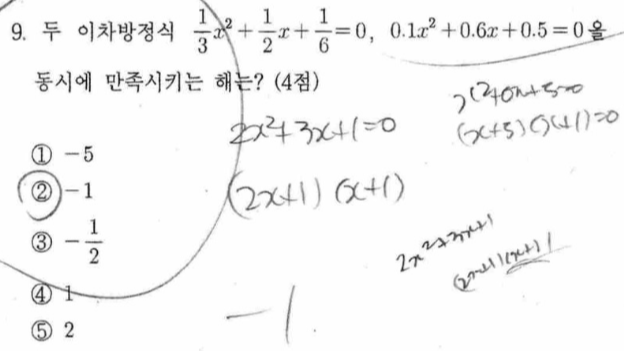 9. 두 이차방정식 $\frac{1}{3}x^2+\frac{1}{2}x+\frac{1}{6}=0$, $0.1x^2+0.6x+0.5=0$ 을
동시에 만족시키는 해는? (4점)
① -5
② -1
③ $-\frac{1}{2}$
④ 1
⑤ 2
2x²+3x+1=0
(2x+1)(x+1)
x²+6x+5=0
(x+5)(x+1)=0
2x²+3x+1
(2x+1)(x+1)
-1.